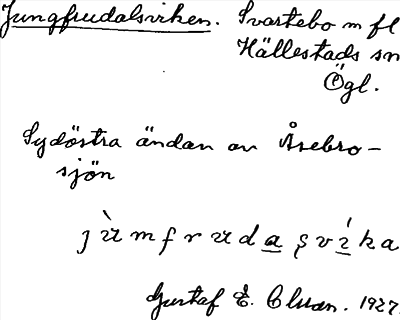 Jungfrudalsviken. Svartebo m fl
Hällestads sn
Ögl.
Sydöstra ändan av Åsebro-
sjön
jùmfrudaṣvíka
Gustaf E. Olsson. 1927.